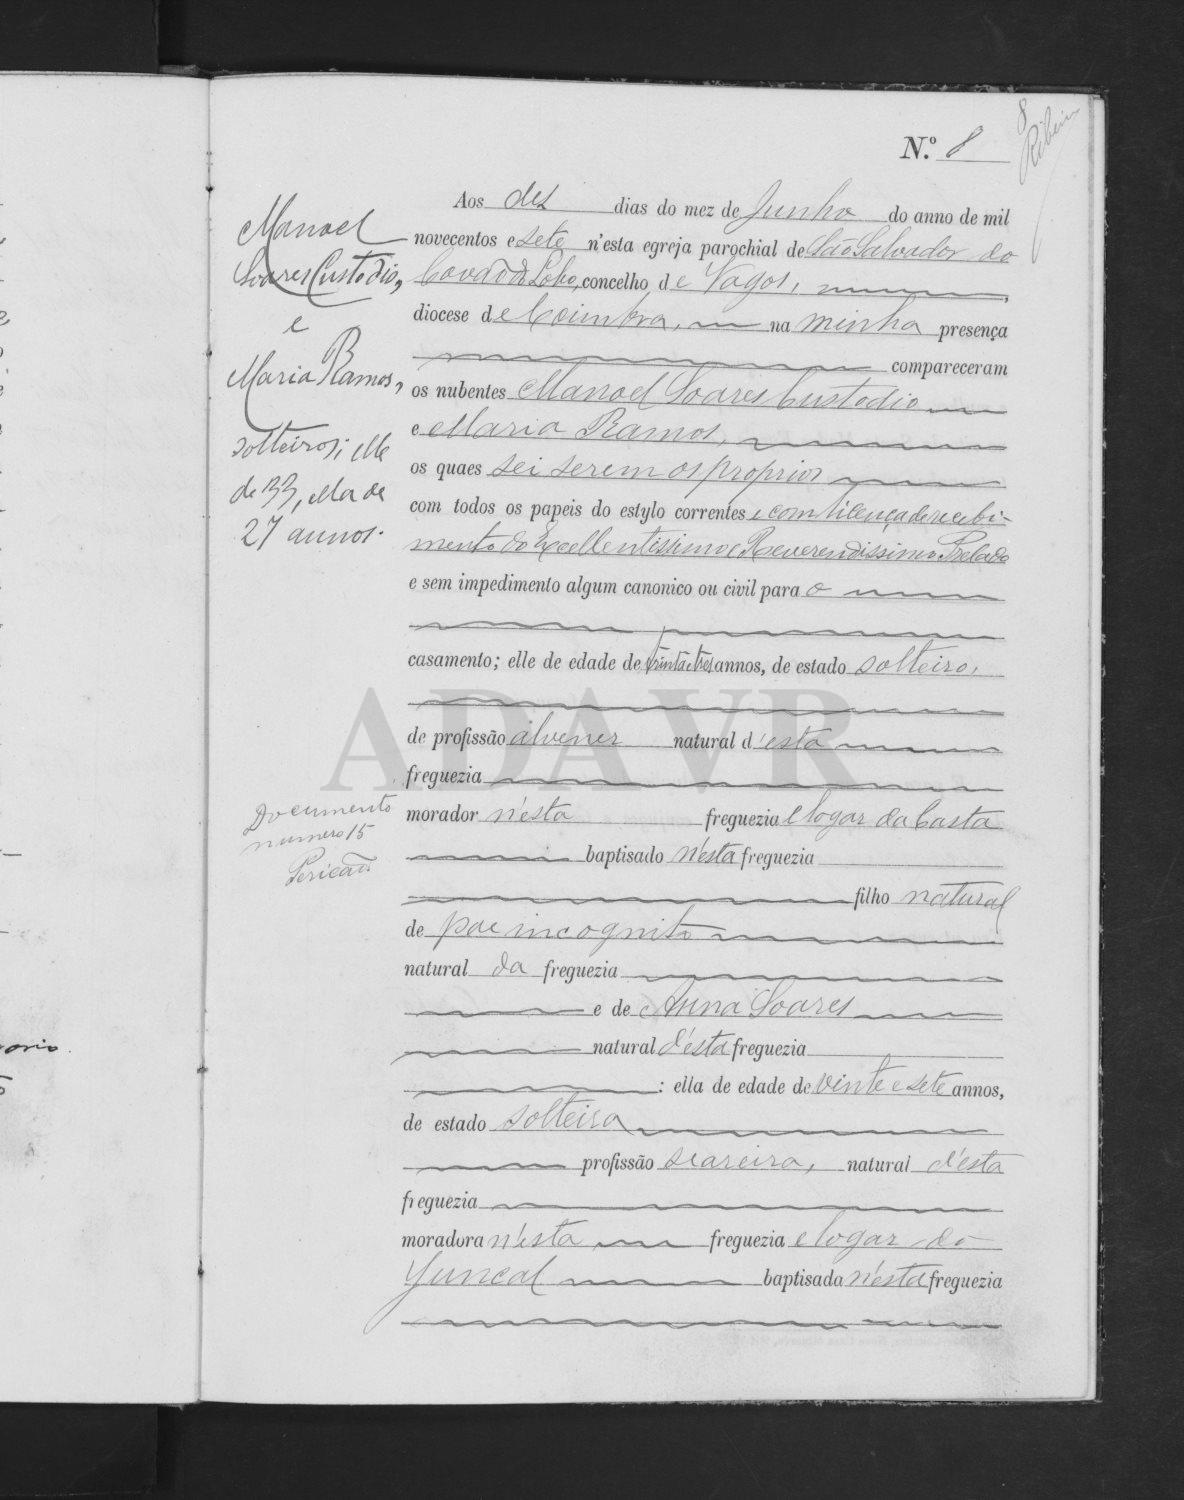 8
Ribeiro
N.º 8
Manoel
Soares Custodio,
e
Maria Ramos,
solteiros; elle
de 33, ella de
27 annos.
Aos dez dias do mez de Junho do anno de mil
novecentos e sete n'esta egreja parochial de São Salvador do
Covão do Lobo, concelho de Vagos,
diocese de Coimbra, na minha presença
compareceram
os nubentes Manoel Soares Custodio
e Maria Ramos,
os quaes sei serem os proprios
com todos os papeis do estylo correntes e com licença de recebi-
mento do Excellentissimo e Reverendissimo Prelado
e sem impedimento algum canonico ou civil para o
casamento; elle de edade de trinta e tres annos, de estado solteiro,
de profissão alvener natural d'esta
freguezia
morador n'esta freguezia e logar da Casta
baptisado n'esta freguezia
filho natural
de pae incognito
natural da freguezia
e de Anna Soares
natural d'esta freguezia
: ella de edade de vinte e sete annos,
de estado solteira
profissão seareira, natural d'esta
freguezia
moradora n'esta freguezia e logar do
Juncal baptisada n'esta freguezia
Documento
numero 15
ADAVR